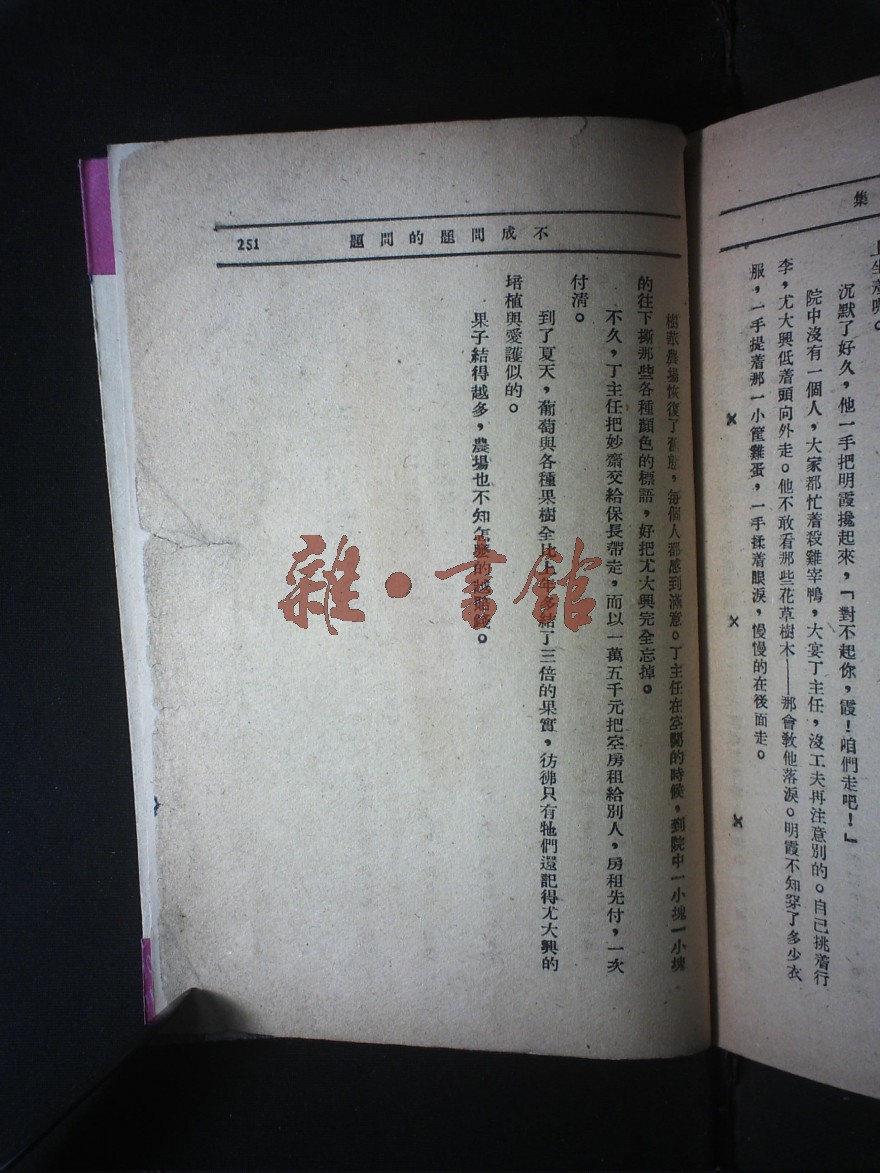 集
上生着呢。
沉默了好久，他一手把明霞攙起來，「對不起你，霞！咱們走吧！」
院中沒有一個人，大家都忙着殺雞宰鴨，大宴丁主任，沒工夫再注意別的。自己挑着行
李，尤大興低着頭向外走。他不敢看那些花草樹木——那會教他落淚。明霞不知穿了多少衣
服，一手提着那一小筐雞蛋，一手揉着眼淚，慢慢的在後面走。
× × ×
不成問題的問題 251
樹華農場恢復了舊態，每個人都感到滿意。丁主任在空閒的時候，到院中一小塊一小塊
的往下撕那些各種顏色的標語，好把尤大興完全忘掉。
不久，丁主任把妙齋交給保長帶走，而以一萬五千元把空房租給別人，房租先付，一次
付清。
到了夏天，葡萄與各種果樹全比上年多結了三倍的果實，彷彿只有牠們還記得尤大興的
培植與愛護似的。
果子結得越多，農場也不知怎麼的越賠錢。
雜·書館